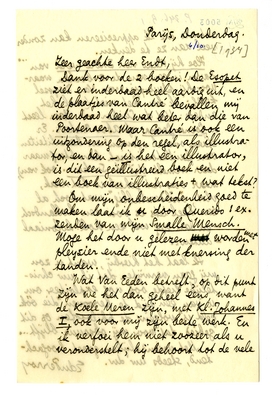 Parijs, Donderdag.
4/10 [1934]
Zeer geachte heer Endt,
Dank voor de 2 boeken! De Esopet
ziet er inderdaad heel aardig uit, en
de plaatjes van Cantré bevallen mij
inderdaad heel wat beter dan die van
Poortenaer. Maar Cantré is ook een
uitzondering op den regel, als illustra-
tor, en dan – is het een illustrator,
is dit een geïllustreerd boek en niet
een boek van illustraties + wat tekst?
Om mijn onbescheidenheid goed te
maken laat ik u door Querido 1 ex.
zenden van mijn Smalle Mensch.
Moge het door u gelezen worden met
pleysier ende niet met knersing der
tanden.
Wat Van Eeden betreft, op dit punt
zijn we het dan geheel eens, want
de Koele Meren zijn, met Kl. Johannes
I, ook voor mij zijn beste werk. En
ik verfoei hem niet zoozeer als u
veronderstelt; hij behoort tot de vele